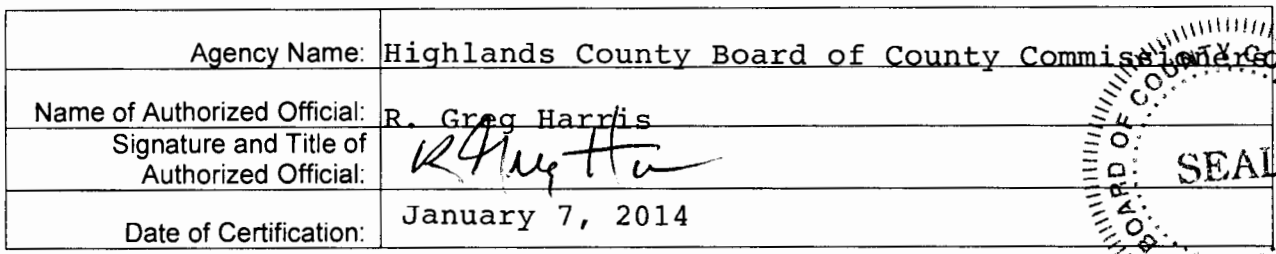 Agency Name: Highlands County Board of County Commissioners
Name of Authorized Official: R. Greg Harris
Signature and Title of
Authorized Official:
Date of Certification: January 7, 2014
BOARD OF COUNTY CO
SEAL